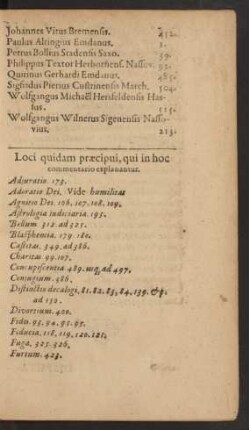 Johannes Vitus Bremensis. 252.
Paulus Altingius Emdanus. 1.
Petrus Bollius Stadensis Saxo. 59.
Philippus Textor Herbornens. Nassov. 92.
Quirinus Gerhardi Emdanus. 485.
Sigfridus Pierius Custrinensis March. 504.
Wolfgangus Michaël Hersfeldensis Has-
sus. 515.
Wolfgangus Wilnerus Sigenensis Nasso-
vius. 213.
Loci quidam præcipui, qui in hoc
commentario explanantur.
Adiuratio. 173.
Adoratio Dei. Vide humilitas
Agnitio Dei. 106, 107. 108. 109.
Astrologia iudiciaria. 195.
Bellum 312. ad 325.
Blasphemia. 179. 180.
Castitas. 349. ad 386.
Charitas 99. 107.
Concupiscentia 489. usq; ad 497.
Coniugium. 386.
Distinctio decalogi, 81. 82. 83, 84, 139. &q.
ad 152.
Divortium. 400.
Fides. 93. 94. 95. 97.
Fiducia. 118. 119, 120. 121.
Fuga. 325. 326.
Furtum. 423.